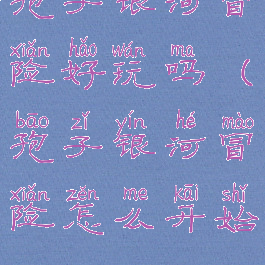 孢子银河冒
xiǎn hǎo wán ma
险好玩吗（
bāo zǐ yín hé mào
孢子银河冒
xiǎn zěn me kāi shǐ
险怎么开始